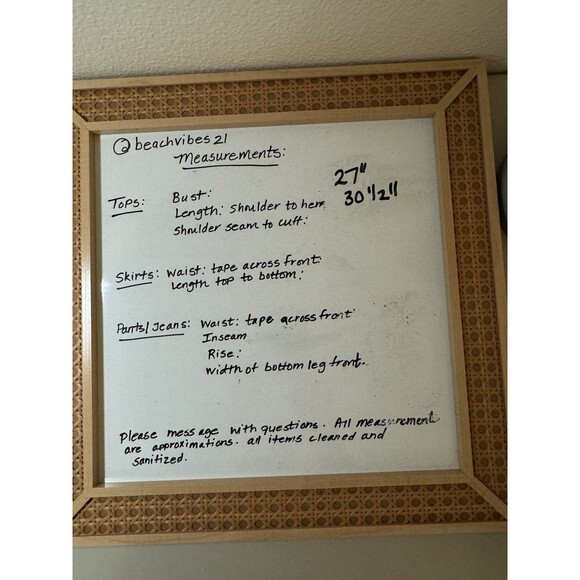 @beachvibes21
Measurements:
Tops: Bust: 27"
Length: Shoulder to hem 30 1/2"
Shoulder seam to cuff:
Skirts: Waist: tape across front:
Length top to bottom:
Pants/Jeans: Waist: tape across front
Inseam
Rise:
Width of bottom leg front.
Please message with questions. All measurements
are approximations. all items cleaned and
sanitized.